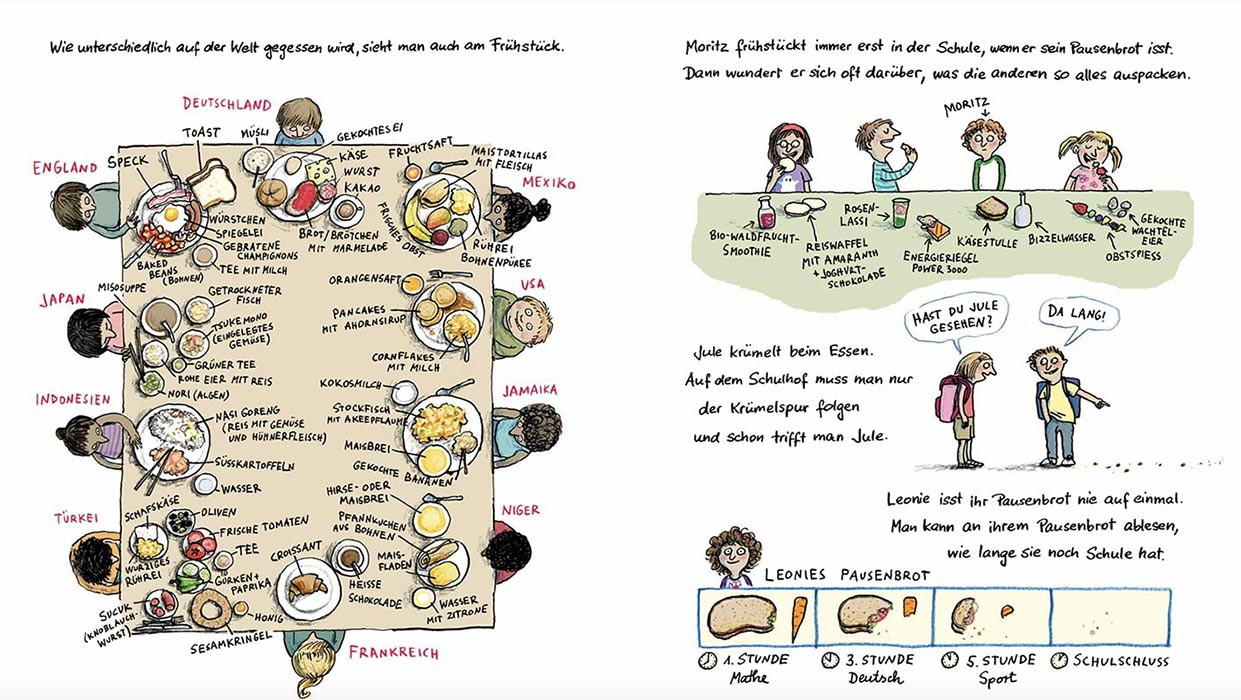 Wie unterschiedlich auf der Welt gegessen wird, sieht man auch am Frühstück.
DEUTSCHLAND
TOAST
MÜSLI
GEKOCHTES EI
KÄSE
WURST
KAKAO
BROT/BRÖTCHEN
MIT MARMELADE
ENGLAND
SPECK
WÜRSTCHEN
SPIEGELEI
GEBRATENE
CHAMPIGNONS
TEE MIT MILCH
BAKED
BEANS
(BOHNEN)
FRUCHTSAFT
MAISTORTILLAS
MIT FLEISCH
MEXIKO
FRISCHES OBST
RÜHREI
BOHNENPÜREE
JAPAN
MISOSUPPE
GETROCKNETER
FISCH
TSUKEMONO
(EINGELEGTES
GEMÜSE)
GRÜNER TEE
ROHE EIER MIT REIS
NORI (ALGEN)
ORANGENSAFT
USA
PANCAKES
MIT AHORNSIRUP
CORNFLAKES
MIT MILCH
INDONESIEN
NASI GORENG
(REIS MIT GEMÜSE
UND HÜHNERFLEISCH)
SÜSSKARTOFFELN
WASSER
KOKOSMILCH
JAMAIKA
STOCKFISCH
MIT AKEEPFLAUME
MAISBREI
GEKOCHTE BANANEN
TÜRKEI
SCHAFSKÄSE
OLIVEN
FRISCHE TOMATEN
TEE
WÜRZIGES
RÜHREI
GURKEN+
PAPRIKA
SUCUK
(KNOBLAUCH-
WURST)
HONIG
SESAMKRINGEL
HIRSE- ODER
MAISBREI
NIGER
PFANNKUCHEN
AUS BOHNEN
MAIS-
FLADEN
WASSER
MIT ZITRONE
CROISSANT
HEISSE
SCHOKOLADE
FRANKREICH
Moritz frühstückt immer erst in der Schule, wenn er sein Pausenbrot isst.
Dann wundert er sich oft darüber, was die anderen so alles auspacken.
MORITZ
BIO-WALDFRUCHT-
SMOOTHIE
REISWAFFEL
MIT AMARANTH
+ JOGHURT-
SCHOKOLADE
ROSEN-
LASSI
ENERGIERIEGEL
POWER 3000
KÄSESTULLE
BIZZELWASSER
GEKOCHTE
WACHTEL-
EIER
OBSTSPIESS
HAST DU JULE
GESEHEN?
DA LANG!
Jule krümelt beim Essen.
Auf dem Schulhof muss man nur
der Krümelspur folgen
und schon trifft man Jule.
Leonie isst ihr Pausenbrot nie auf einmal.
Man kann an ihrem Pausenbrot ablesen,
wie lange sie noch Schule hat.
LEONIES PAUSENBROT
1. STUNDE
Mathe
3. STUNDE
Deutsch
5. STUNDE
Sport
SCHULSCHLUSS